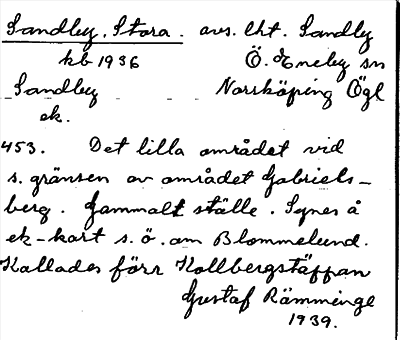 Sandby, Stora. avs. Cht. Sandby
kb 1936 Ö. Eneby sn
Sandby Norrköping Ögl
ek.
453. Det lilla området vid
s. gränsen av området Gabriels-
berg. Gammalt ställe. Synes å
ek-kart s. ö. om Blommelund.
Kallades förr Kollbergstäppan
Gustaf Rämminge
1939.